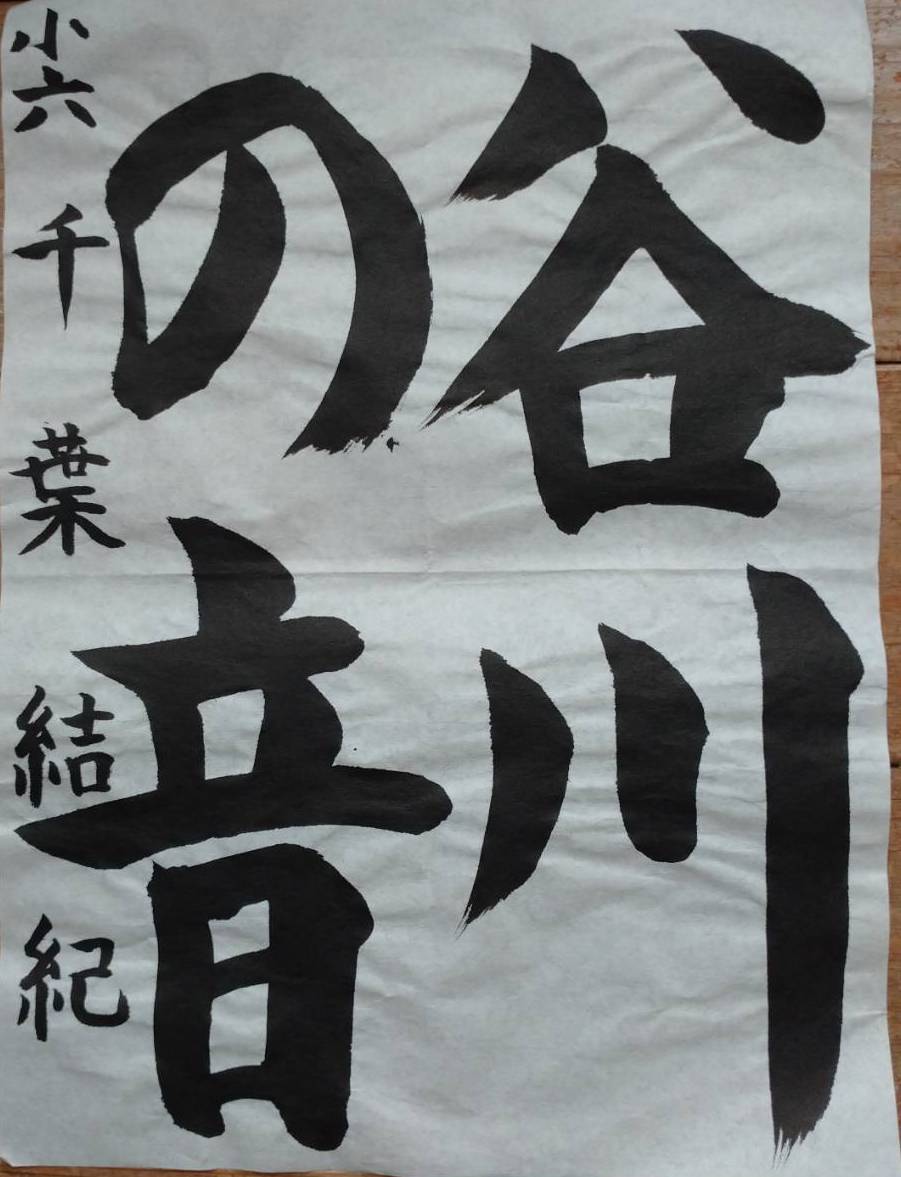 谷川
の音
小六 千葉 結紀